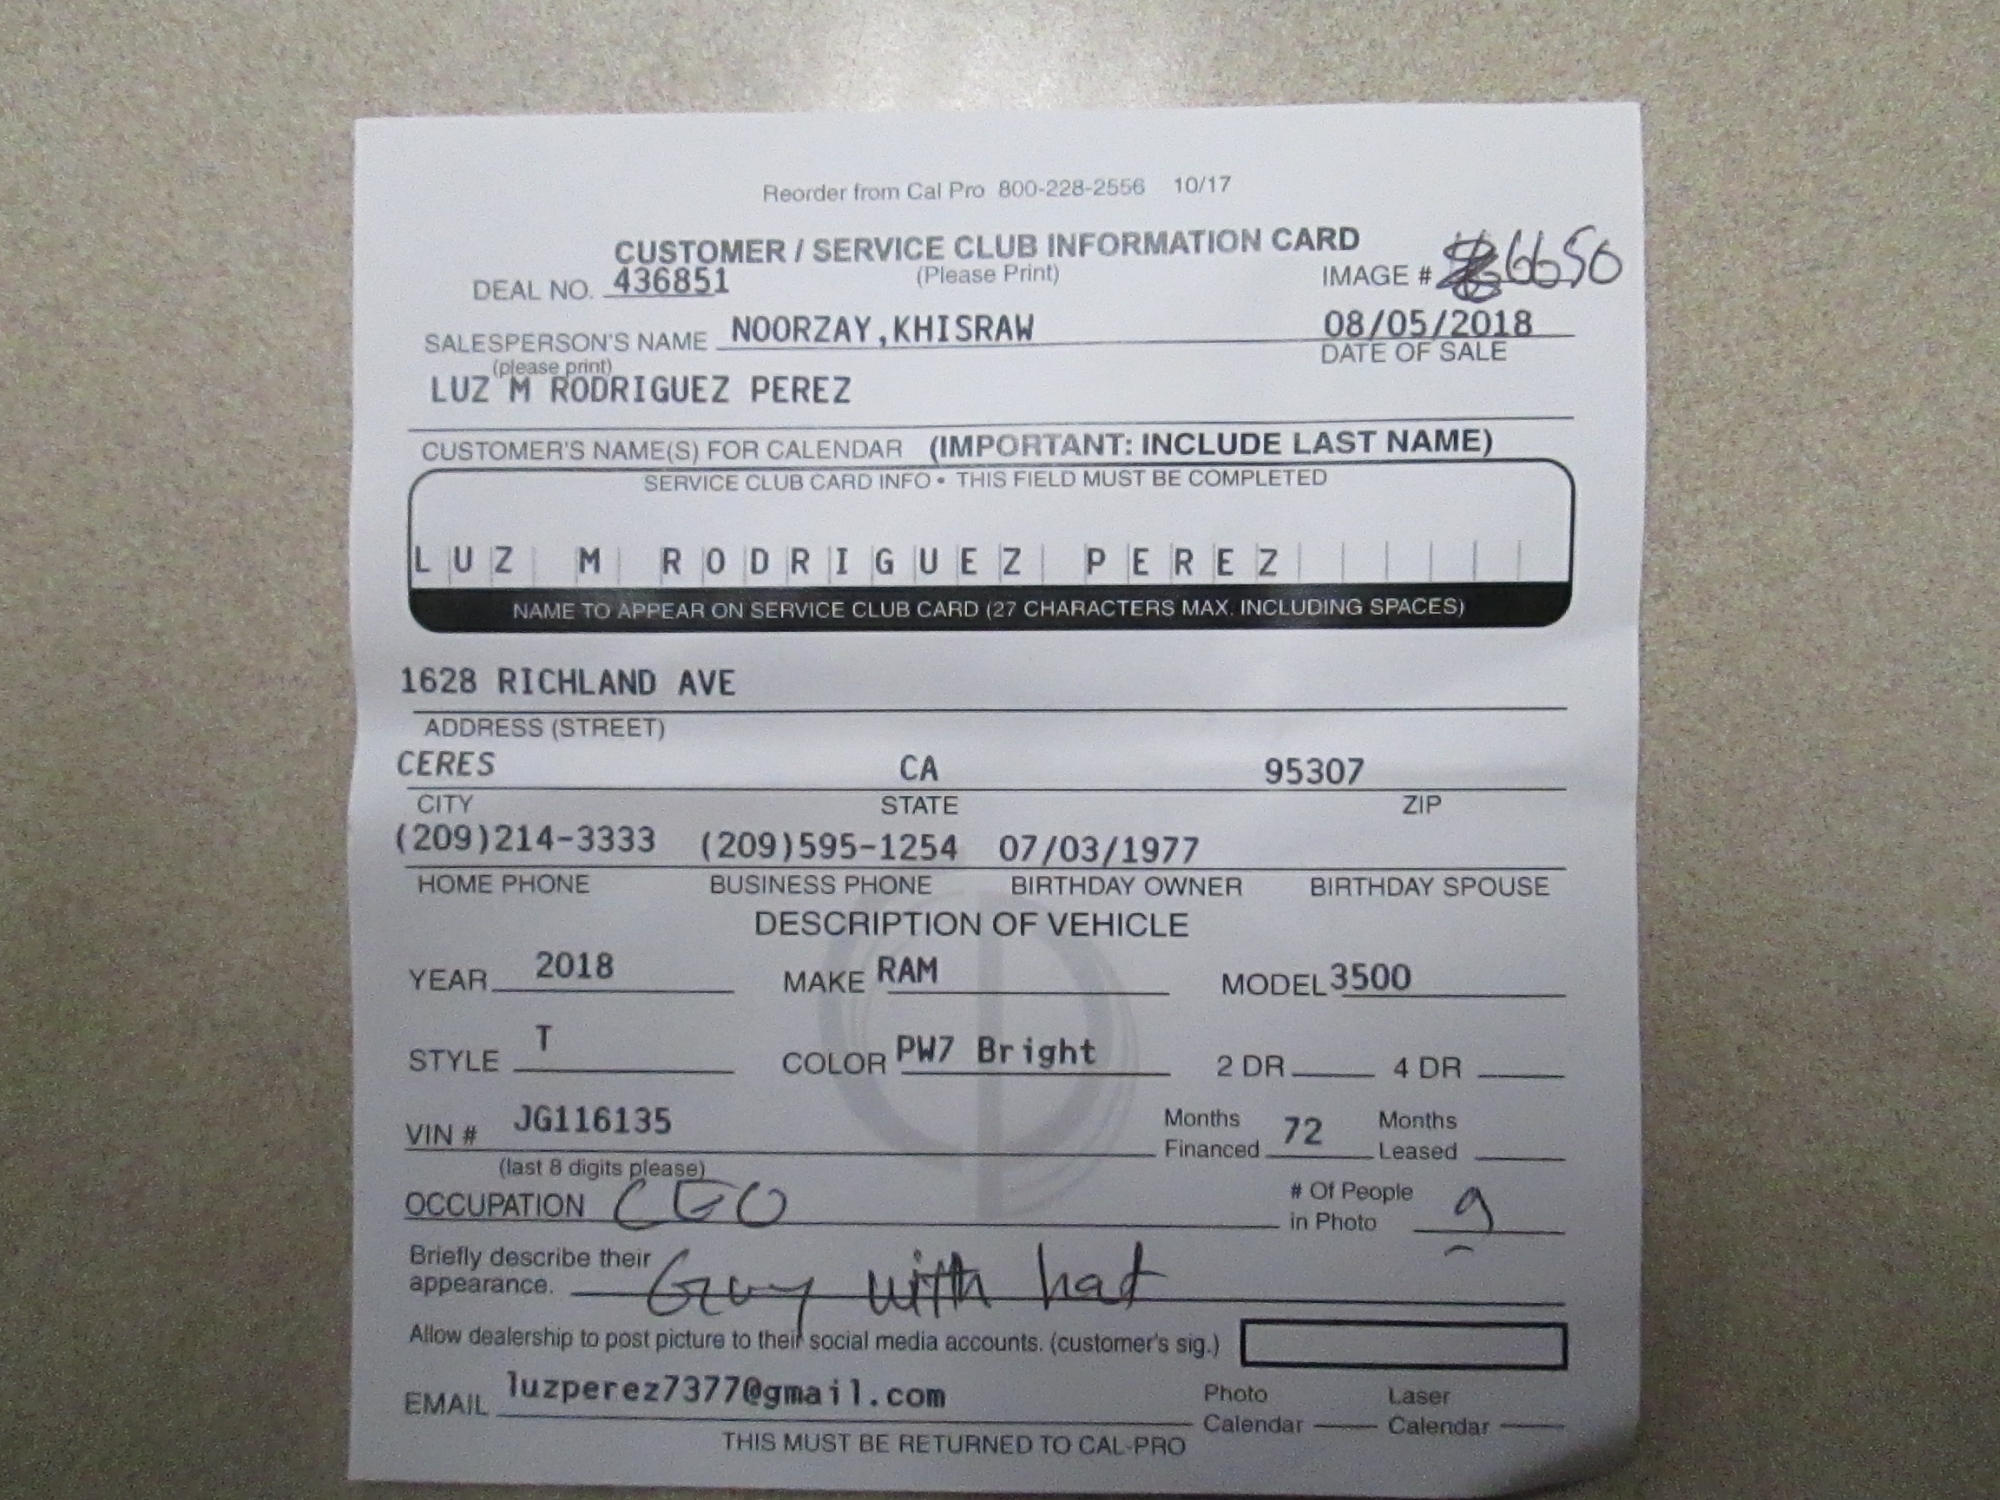 Reorder from Cal Pro 800-228-2556 10/17
CUSTOMER / SERVICE CLUB INFORMATION CARD
(Please Print)
DEAL NO. 436851
IMAGE # 6650
SALESPERSON'S NAME NOORZAY,KHISRAW 08/05/2018
(please print) DATE OF SALE
LUZ M RODRIGUEZ PEREZ
CUSTOMER'S NAME(S) FOR CALENDAR (IMPORTANT: INCLUDE LAST NAME)
SERVICE CLUB CARD INFO • THIS FIELD MUST BE COMPLETED
LUZ M RODRIGUEZ PEREZ
NAME TO APPEAR ON SERVICE CLUB CARD (27 CHARACTERS MAX. INCLUDING SPACES)
1628 RICHLAND AVE
ADDRESS (STREET)
CERES CA 95307
CITY STATE ZIP
(209)214-3333 (209)595-1254 07/03/1977
HOME PHONE BUSINESS PHONE BIRTHDAY OWNER BIRTHDAY SPOUSE
DESCRIPTION OF VEHICLE
YEAR 2018 MAKE RAM MODEL 3500
STYLE T COLOR PW7 Bright 2 DR 4 DR
VIN # JG116135 Months Financed 72 Months Leased
(last 8 digits please)
OCCUPATION CEO # Of People in Photo
Briefly describe their
appearance. Guy with hat
Allow dealership to post picture to their social media accounts. (customer's sig.)
EMAIL luzperez7377@gmail.com Photo Calendar Laser Calendar
THIS MUST BE RETURNED TO CAL-PRO